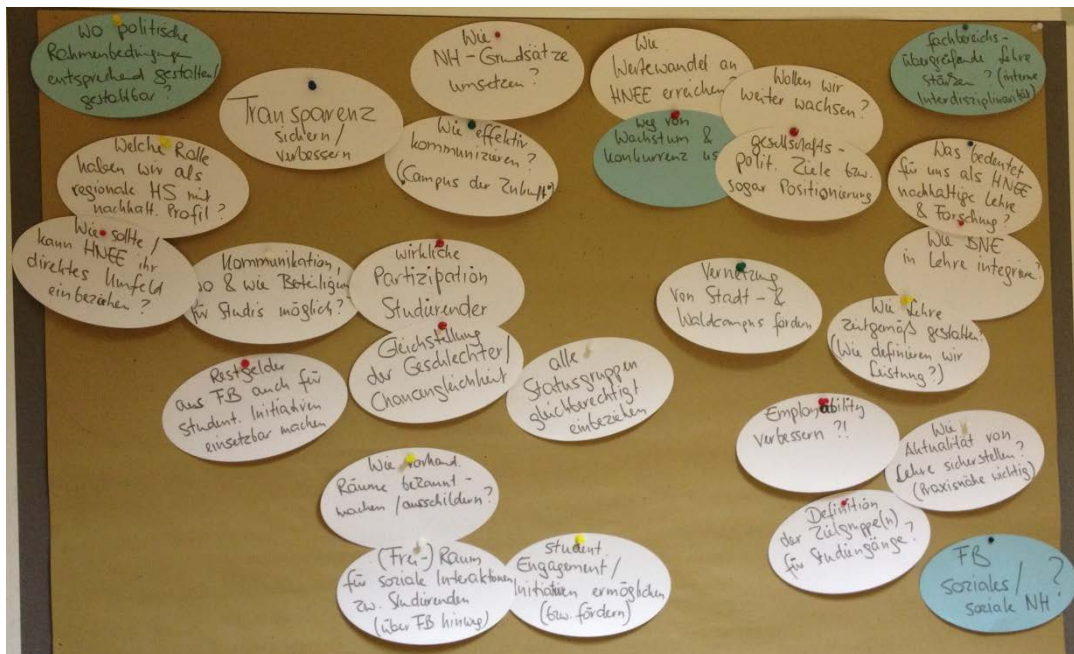 Wo politische
Rahmenbedingungen
entsprechend gestalten/
gestaltbar?
Transparenz
sichern/
verbessern
Wie
NH-Grundsätze
umsetzen?
Wie
Wertewandel an
HNEE erreichen?
Wollen wir
weiter wachsen?
fachbereichs-
übergreifende Lehre
stärken? (interne
Interdisziplinarität)
Welche Rolle
haben wir als
regionale HS mit
nachhalt. Profil?
Wie effektiv
kommunizieren?
(Campus der Zukunft)
weg von
Wachstum &
Konkurrenz
gesellschafts-
polit. Ziele bzw.
sogar Positionierung
Was bedeutet
für uns als HNEE
nachhaltige Lehre
& Forschung?
Wie sollte/
kann HNEE ihr
direktes Umfeld
einbeziehen?
Kommunikation,
wo & wie Beteiligung
für Studis möglich?
wirkliche
Partizipation
Studierender
Vernetzung
von Stadt- &
Waldcampus fördern
Wie BNE
in Lehre integrieren?
Wie Lehre
zeitgemäß gestalten?
(Wie definieren wir
Leistung?)
Restgelder
aus FB auch für
student. Initiativen
einsetzbar machen
Gleichstellung
der Geschlechter/
Chancengleichheit
alle
Statusgruppen
gleichberechtigt
einbeziehen
Employability
verbessern?!
Wie
Aktualität von
Lehre sicherstellen?
(Praxisnähe wichtig)
Wie vorhand.
Räume bekannt-
machen/ausschildern?
Definition
der Zielgruppe(n)
für Studiengänge?
(Frei-)Raum
für soziale Interaktionen
zw. Studierenden
(über FB hinweg)
student.
Engagement/
Initiativen ermöglichen
(bzw. fördern)
FB
soziales/
soziale NH?